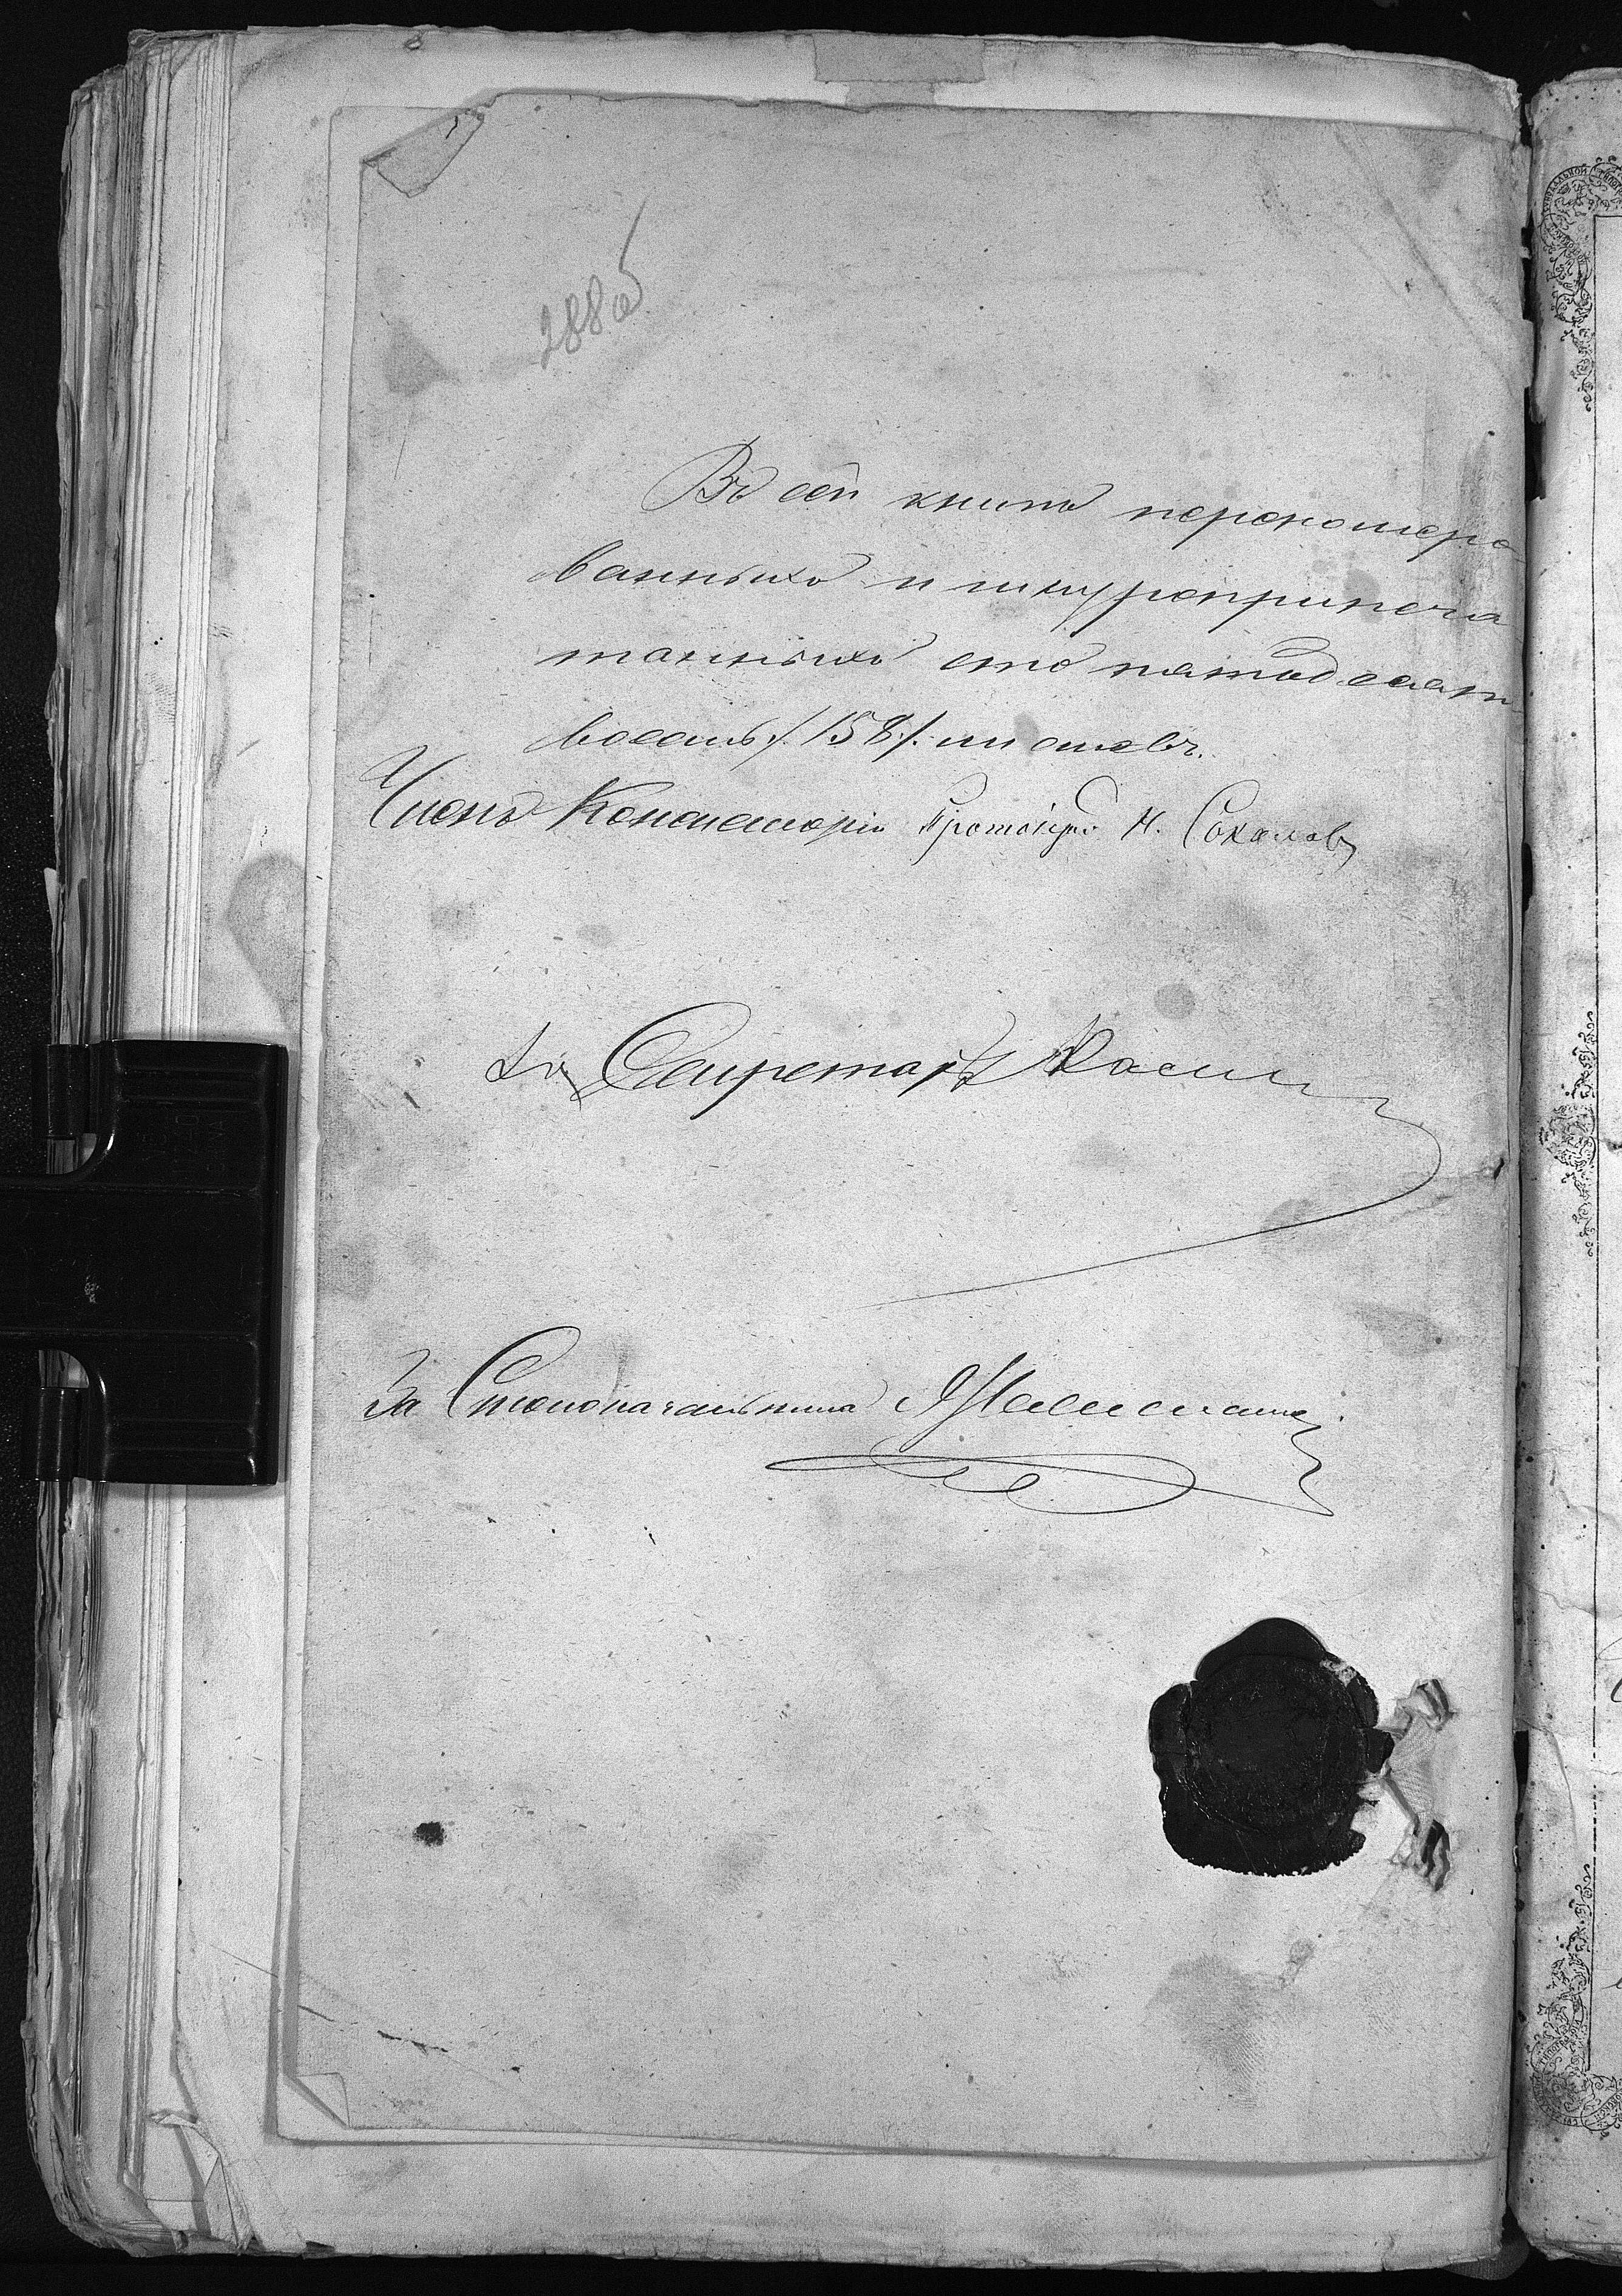 288об
Въ сей книгѣ перенумеро
ванныхъ и шнуроприпеча
танныхъ сто пятьдесятъ
восемь /.158/. листовъ.
Членъ Консисторіи Протоіерей Н. Соколовъ
За Секретаря
За Столоначальника